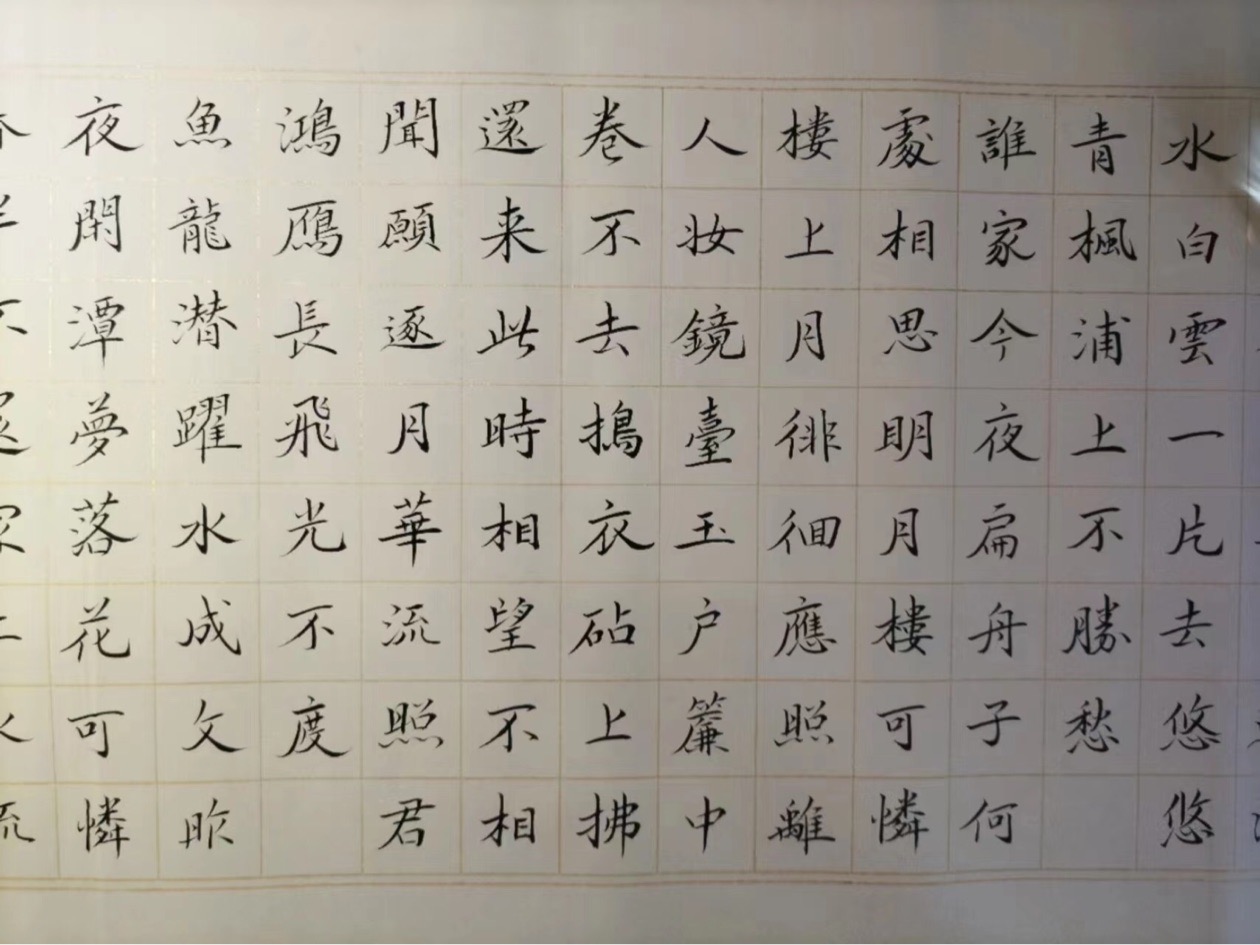 水白雲一片去悠悠
青楓浦上不勝愁
誰家今夜扁舟子何
處相思明月樓可憐
樓上月徘徊應照離
人妆鏡臺玉户簾中
卷不去搗衣砧上拂
還来此時相望不相
聞願逐月華流照君
鴻鴈長飛光不度
魚龍潜躍水成文昨
夜閑潭夢落花可憐